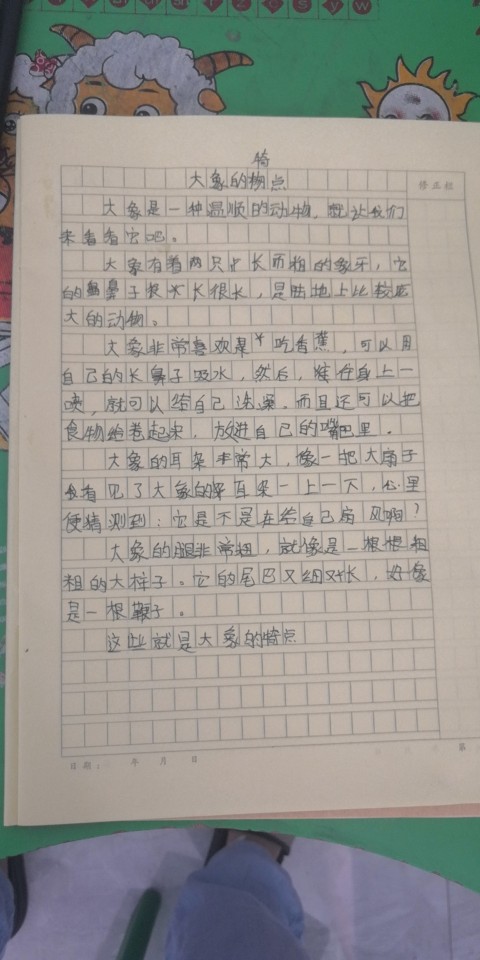 特
大象的特点
修正栏
大象是一种温顺的动物，就让我们
来看看它吧。
大象有着两只又长而粗的象牙，它
的鼻子长长很长，是陆地上比较庞
大的动物。
大象非常喜欢吃香蕉，可以用
自己的长鼻子吸水，然后，往身上一
喷，就可以给自己洗澡，而且还可以把
食物给卷起来，放进自己的嘴巴里。
大象的耳朵非常大，像一把大扇子
看见了大象的耳朵一上一下，心里
便猜测到：它是不是在给自己扇风啊？
大象的腿非常粗，就像是一根根粗
粗的大柱子。它的尾巴又细又长，好像
是一根鞭子。
这些就是大象的特点
日期： 年 月 日
第